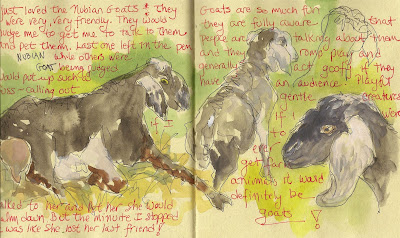 just loved the Nubian Goats & they
were very, very friendly. They would
nudge me to get me to talk to them
and pet them. Last one left in the pen
NUBIAN while others were
GOAT being judged
would put up such a
fuss - calling out
if I
talked to her and pet her she would
calm down. But the minute I stopped
was like she lost her last friend!
Goats are so much fun
they are fully aware that
people are talking about them
and they romp play and
generally act goofy if they
have an audience! Playful
gentle creatures
If I were
to
ever
get farm
animals it would
definitely be
goats!